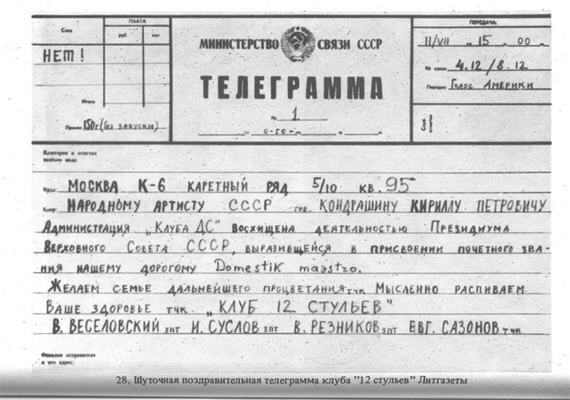 Слов
ПЛАТА
руб
коп
НЕТ!
Итого
Принял 150г (без закуски)
МИНИСТЕРСТВО СВЯЗИ СССР
ТЕЛЕГРАММА
№ 1
ПЕРЕДАЧА.
11/VII 15 00
№ связи 4.12/8.12
Передал Голос Америки
Категория и отметки
особого вида:
Куда: МОСКВА К-6 КАРЕТНЫЙ РЯД 5/10 КВ. 95
Кому: НАРОДНОМУ АРТИСТУ СССР тов. КОНДРАШИНУ КИРИЛЛУ ПЕТРОВИЧУ
Администрация „Клуба ДС" восхищена деятельностью Президиума
Верховного Совета СССР, выразившейся в присвоении почетного зва-
ния нашему дорогому Domestik maestro.
Желаем семье дальнейшего процветания тчк Мысленно распиваем
Ваше здоровье тчк. „КЛУБ 12 СТУЛЬЕВ"
В. ВЕСЕЛОВСКИЙ зпт И. СУСЛОВ зпт В. РЕЗНИКОВ зпт ЕВГ. САЗОНОВ тчк
Фамилия отправителя
и его адрес:
28. Шуточная поздравительная телеграмма клуба "12 стульев" Литгазеты